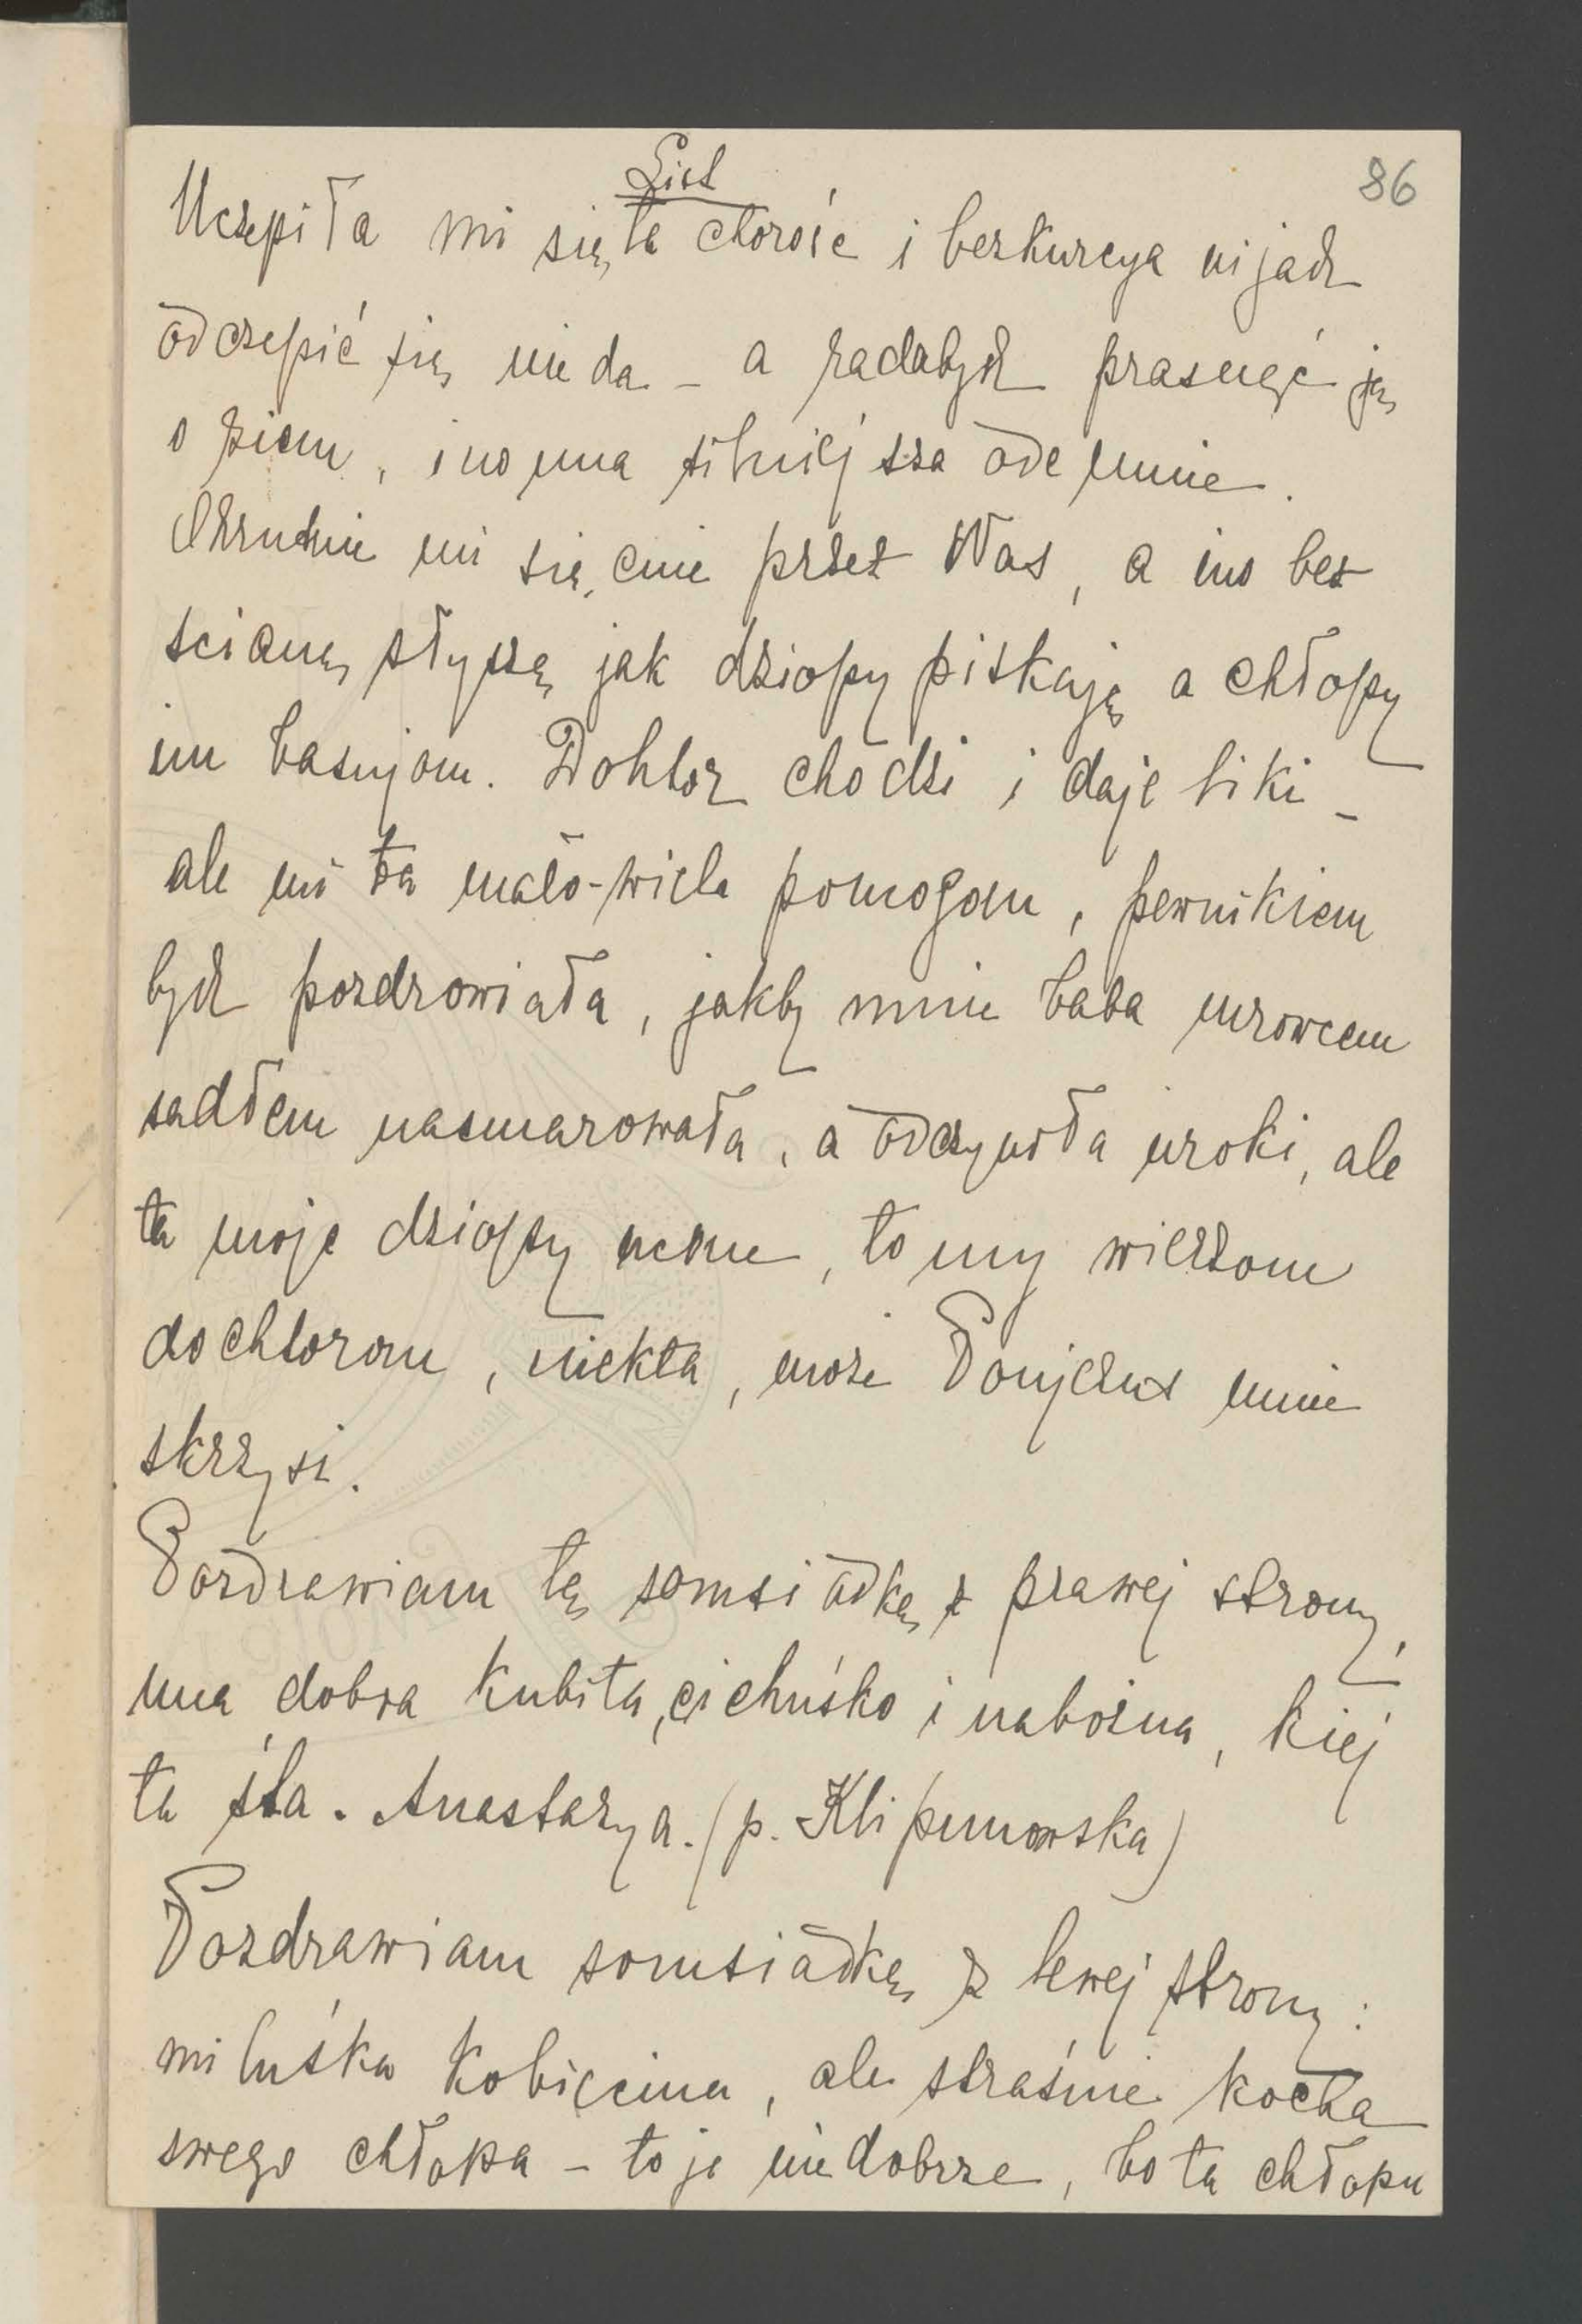 List
86
Uczepiła mi się ta chorość i bezkurcya nijach
odczepić się nie da – a radabych prasnąć ją
o ziem, ino una silniejsza ode mnie.
Okrutnie mi się cnie przez Was, a ino bez
ścianę słyszę jak dziopy piskają a chłopy
im basujom. Dohtor chodzi i daje liki –
ale mi ta mało-wiela pomogom, pewnikiem
bych pozdrowiała, jakby mnie baba mrowcem
sadłem nasmarowała, a odczyniła uroki, ale
ta moje dziopy ucone, to my wierzom
dochtorom, niekta, może Ponjezus mnie
skrzysi.
Pozdrawiam tę somsiadkę z prawej strony,
una dobra kubita, cichuśko i nabożna, kiej
ta śta. Anastazya. (p. Klipunowska)
Pozdrawiam somsiadkę z lewej strony:
miluśka kobiecina, ale straśnie kocha
swego chłopa – to je niedobrze, bo ta chłopu